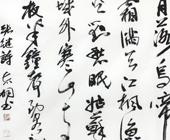 月落烏啼
霜滿天江楓漁
火對愁眠姑蘇
城外寒山寺
夜半鐘聲到
張繼詩
書